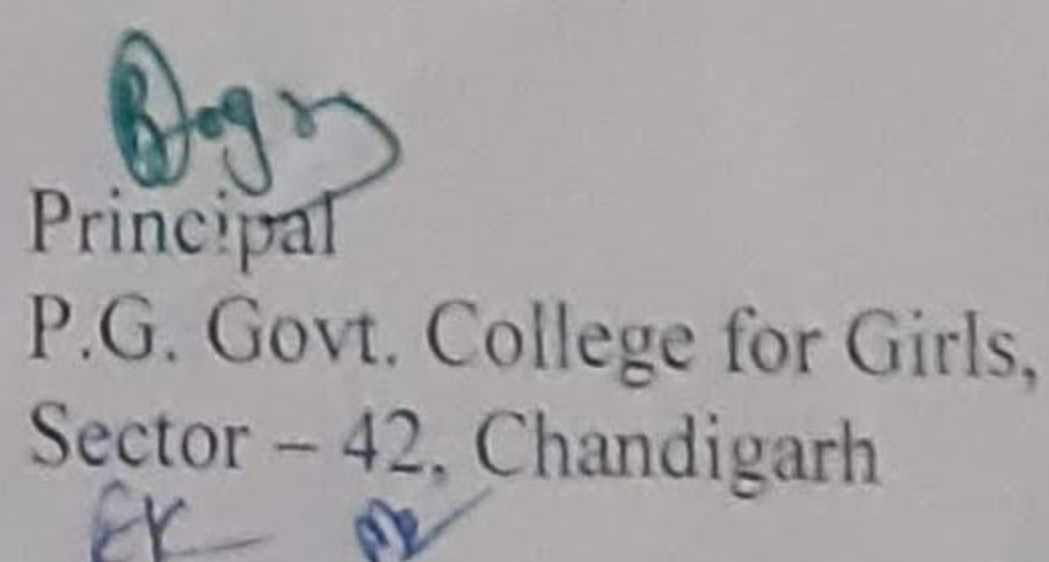 Principal
P.G. Govt. College for Girls,
Sector – 42, Chandigarh